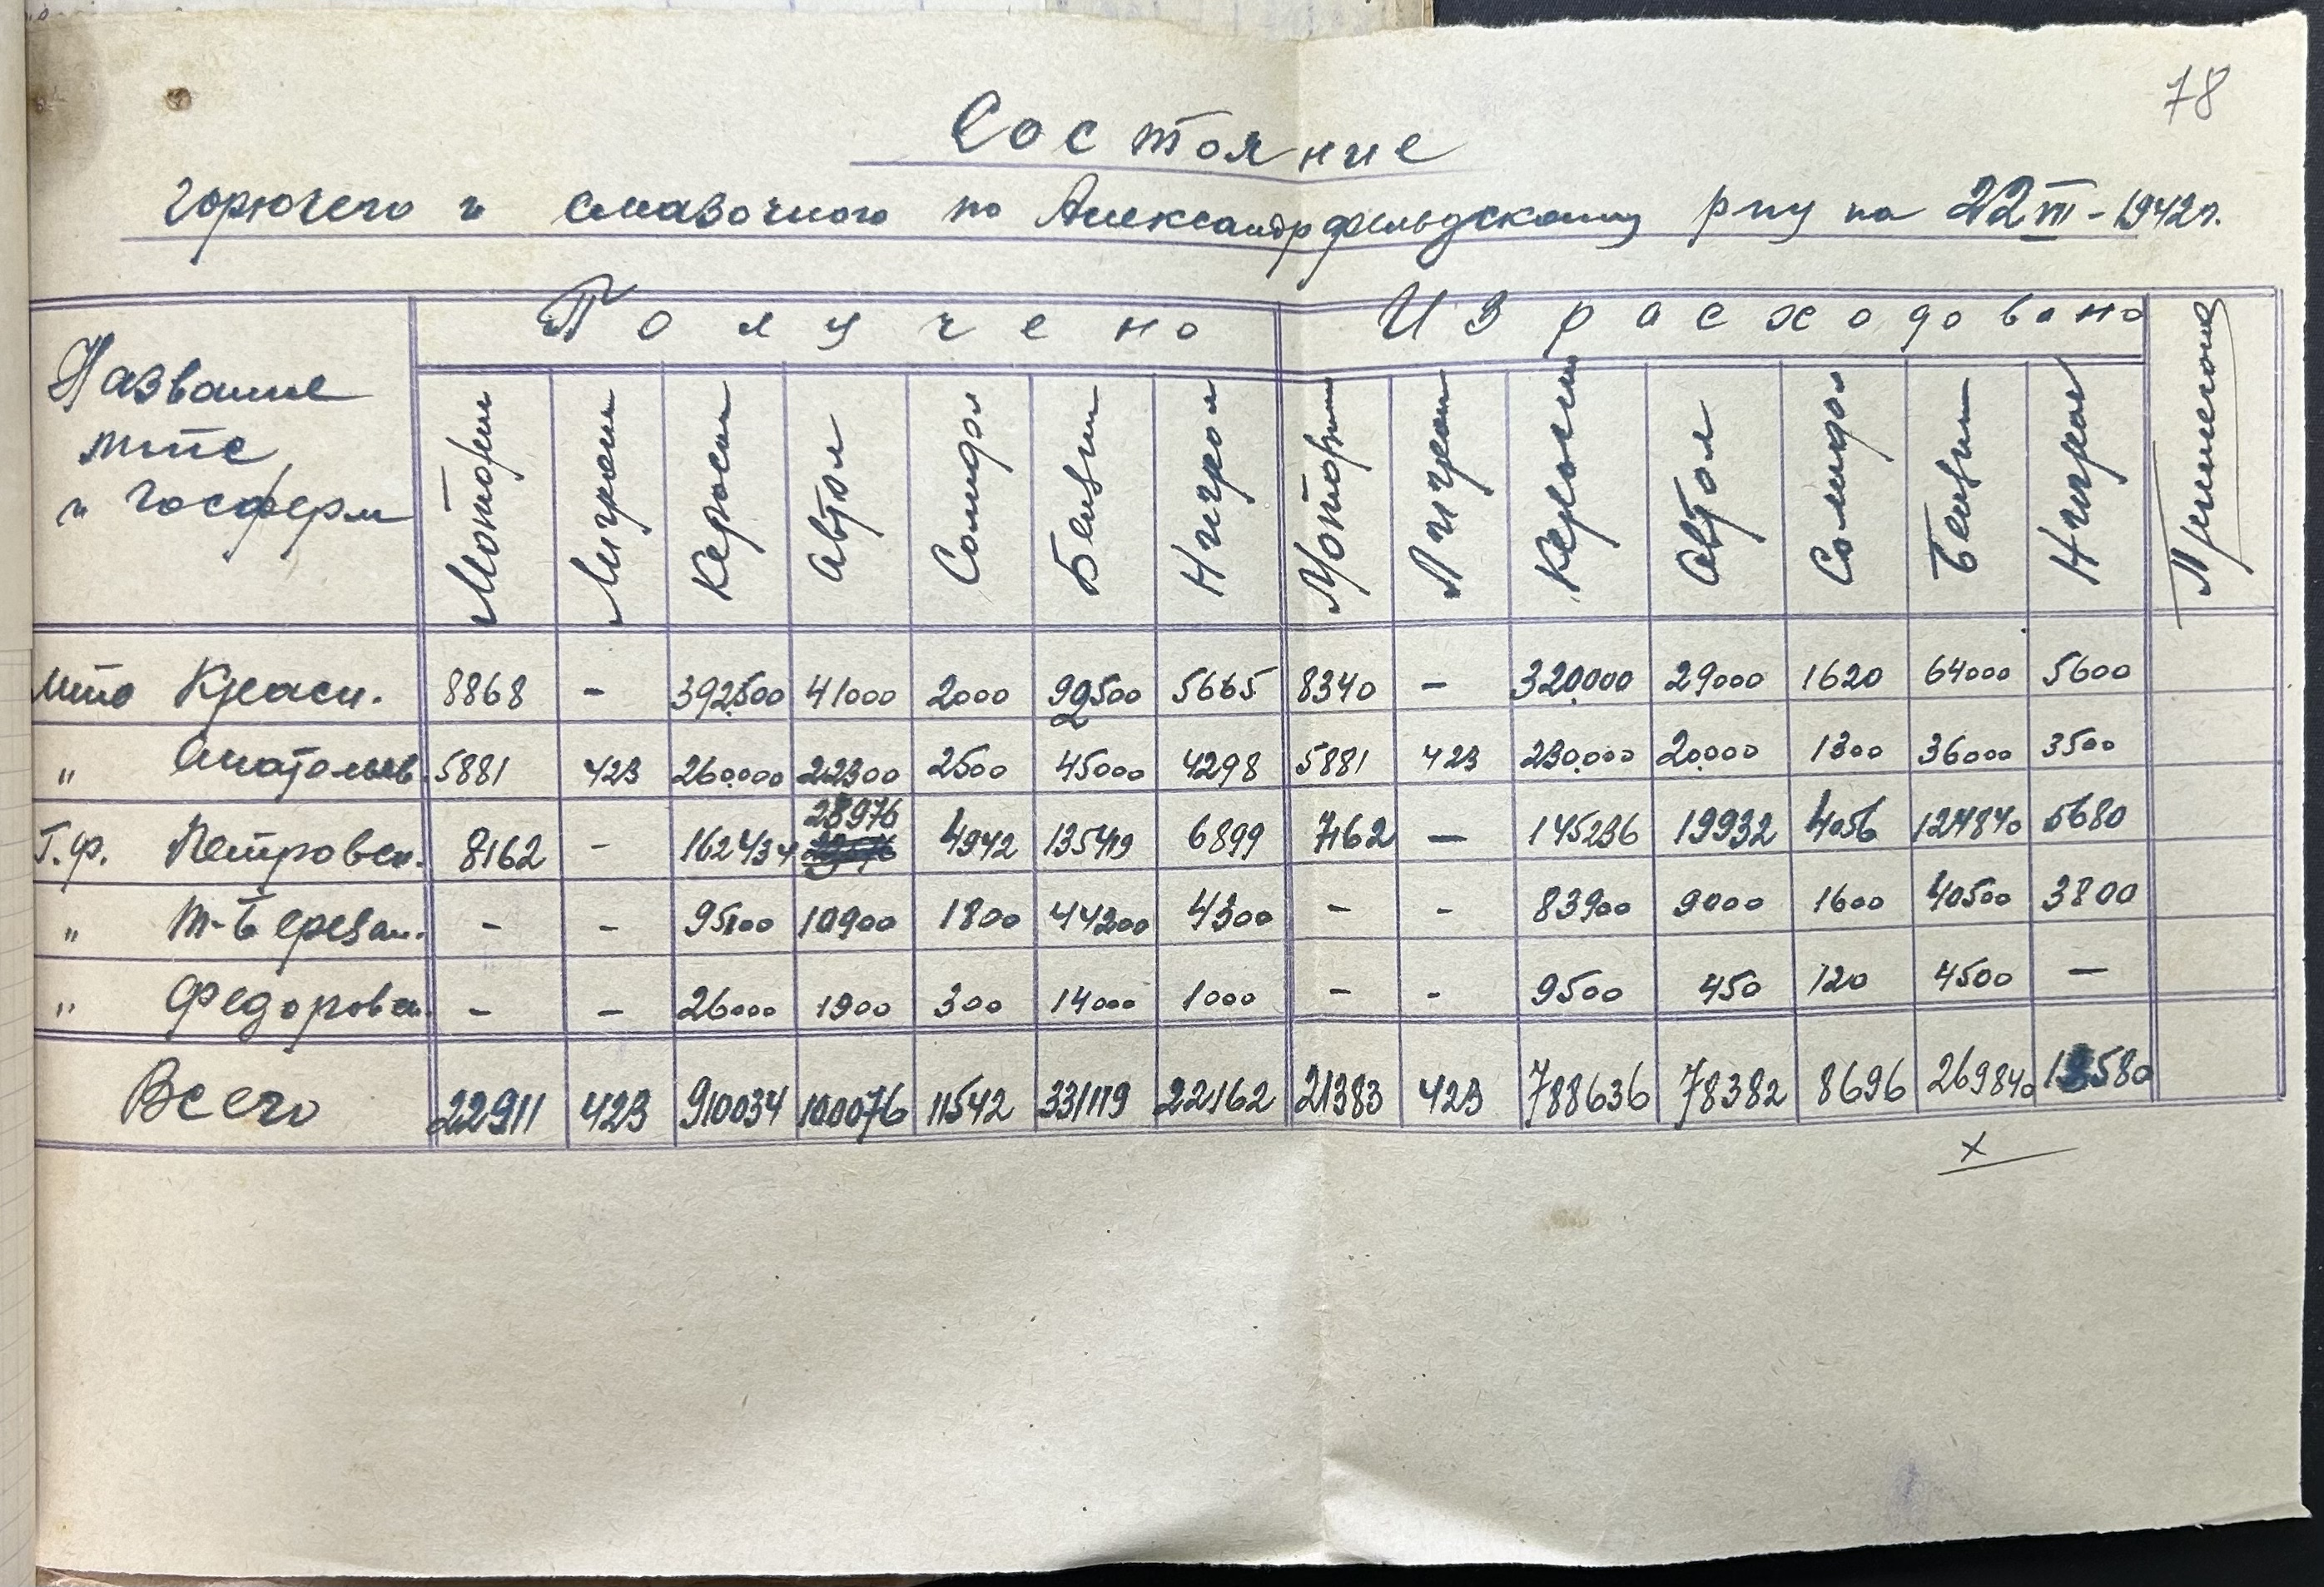 78
Состояние
горючего и смазочного по Александрфельдскому рпу на 22 III - 1942 г.
Название мтс и госферм Получено Израсходовано Примечание
Моторин Лигроин Керосин Автол Солидол Бензин Нигрол Моторин Лигроин Керосин Автол Солидол Бензин Нигрол
мтс Красн. 8868 - 392500 41000 2000 92500 5665 8340 - 320.000 29000 1620 64000 5600
" Анатольев. 5881 423 260.000 22300 2500 45000 4298 5881 423 230.000 20.000 1300 36000 3500
Г.Ф. Петровск. 8162 - 162434 23976 4942 135419 6899 7162 - 145236 19932 4056 124840 5680
" Т-Березан. - - 95100 10900 1800 44200 4300 - - 83900 9000 1600 40500 3800
" Федоровск. - - 26000 1900 300 14000 1000 - - 9500 450 120 4500 -
Всего 22911 423 910034 100076 11542 331119 22162 21383 423 788636 78382 8696 269840 18580
x